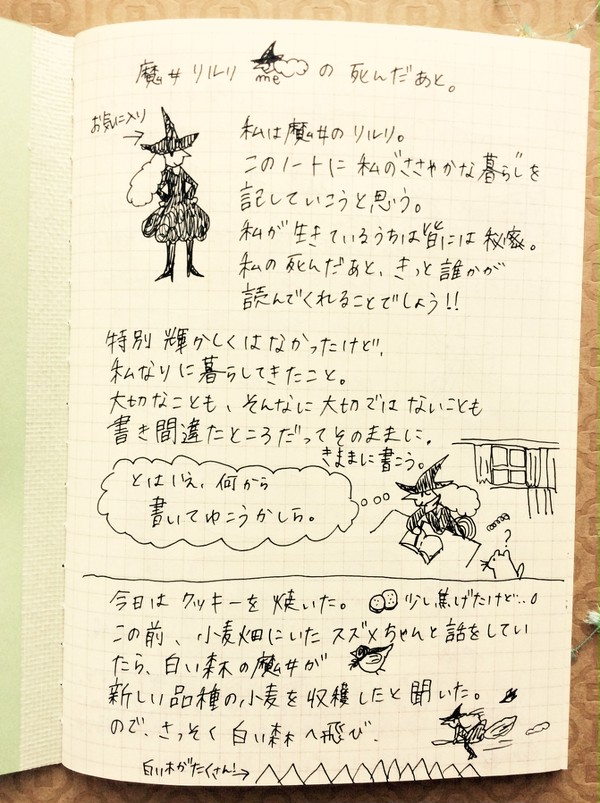 魔女リルリ me の死んだあと。
お気に入り→
私は魔女のリルリ。
このノートに私の"ささやかな暮らし"を
記していこうと思う。
私が生きているうちは皆には秘密。
私の死んだあと、きっと誰かが
読んでくれることでしょう!!
特別輝かしくはなかったけど、
私なりに暮らしてきたこと。
大切なことも、そんなに大切ではないことも
書き間違たところだってそのままに。
きままに書こう。
とはいえ、何から
書いてゆこうかしら。
?
今日はクッキーを焼いた。 少し焦げたけど…。
この前、小麦畑にいたスズメちゃんと話をしてい
たら、白い森の魔女が
新しい品種の小麦を収穫したと聞いた。
ので、さっそく白い森へ飛び、
白い木がたくさん!→